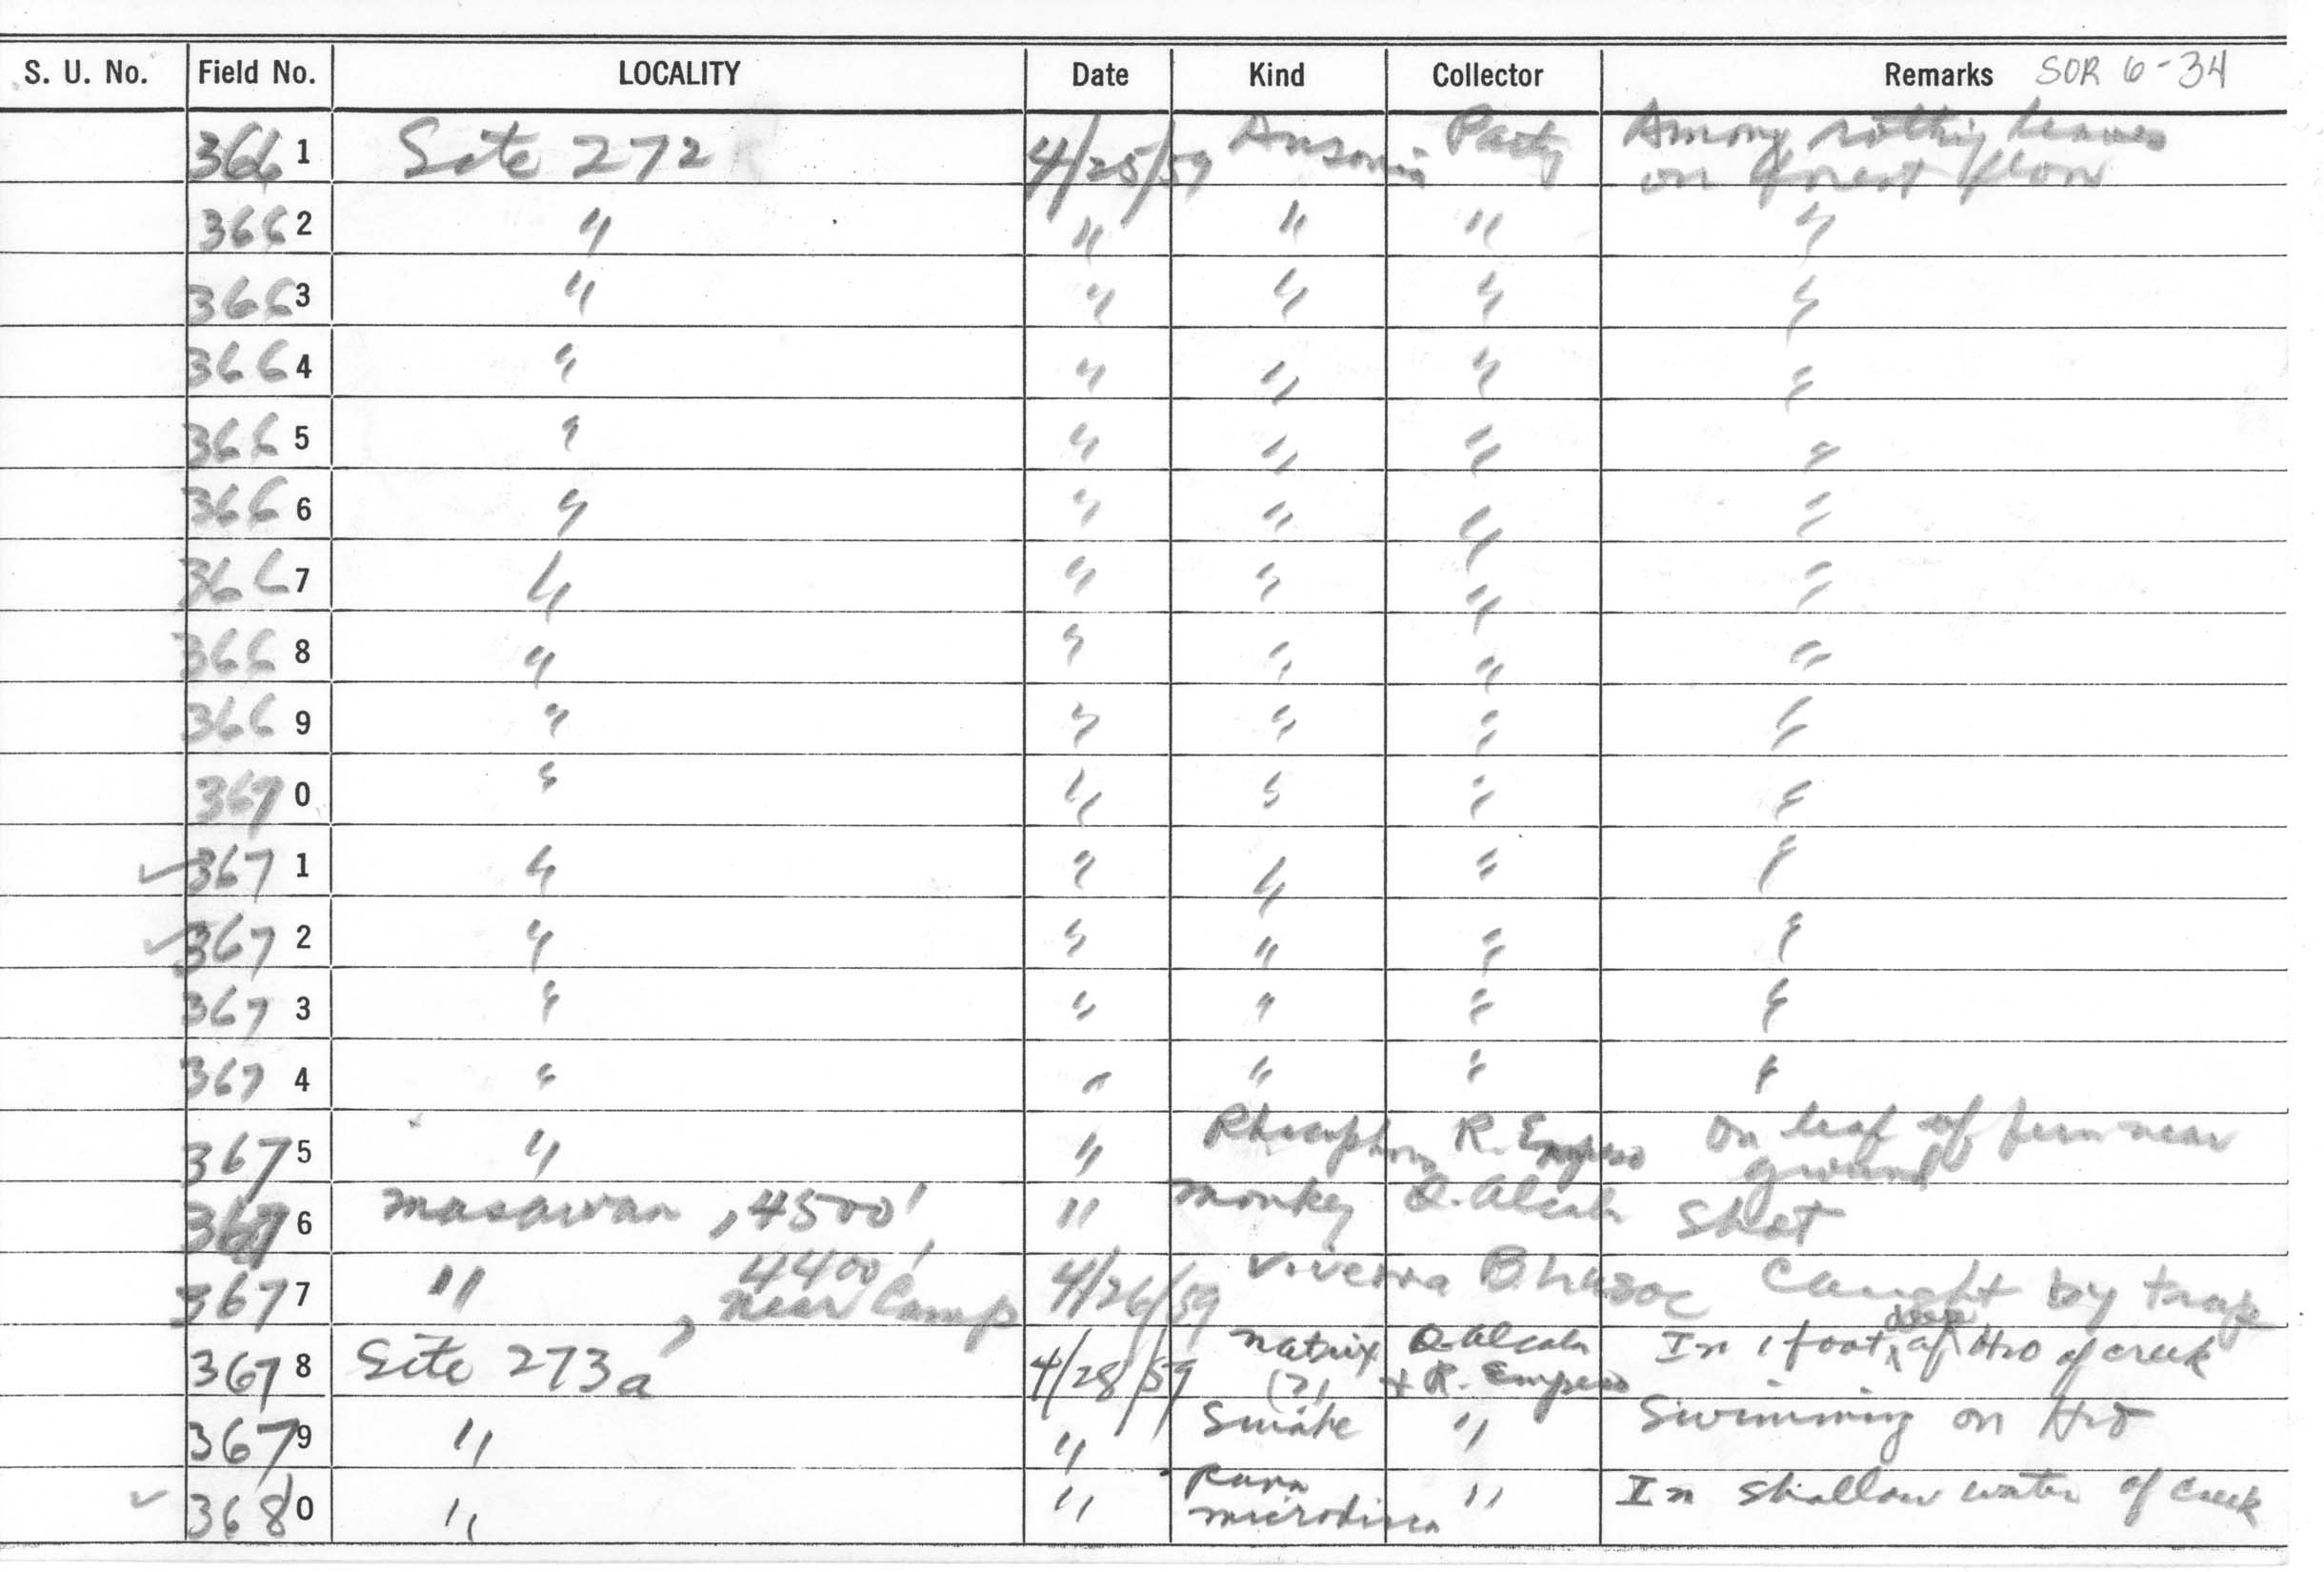 S. U. No. Field No. LOCALITY Date Kind Collector Remarks SOR 6-34
3661 Site 272 4/25/59 Ansonia Party Among rotting leaves
on forest floor
3662 " " " " "
3663 " " " " "
3664 " " " " "
3665 " " " " "
3666 " " " " "
3667 " " " " "
3668 " " " " "
3669 " " " " "
3670 " " " " "
✓3671 " " " " "
✓3672 " " " " "
3673 " " " " "
3674 " " " " "
3675 " " Rhacophorus R. Empeso On leaf of fern near
ground
3676 Masawan, 4500' " Monkey Q. Alcala Shot
3677 " , 4400', near Camp 4/26/59 Viverra B. Lusoc Caught by trap
3678 Site 273a 4/28/59 Natrix (?) Q. Alcala + R. Empeso In 1 foot deep of H2O of creek
3679 " " Snake " Swimming on H2O
✓ 3680 " " Rana microdisca " In shallow water of creek